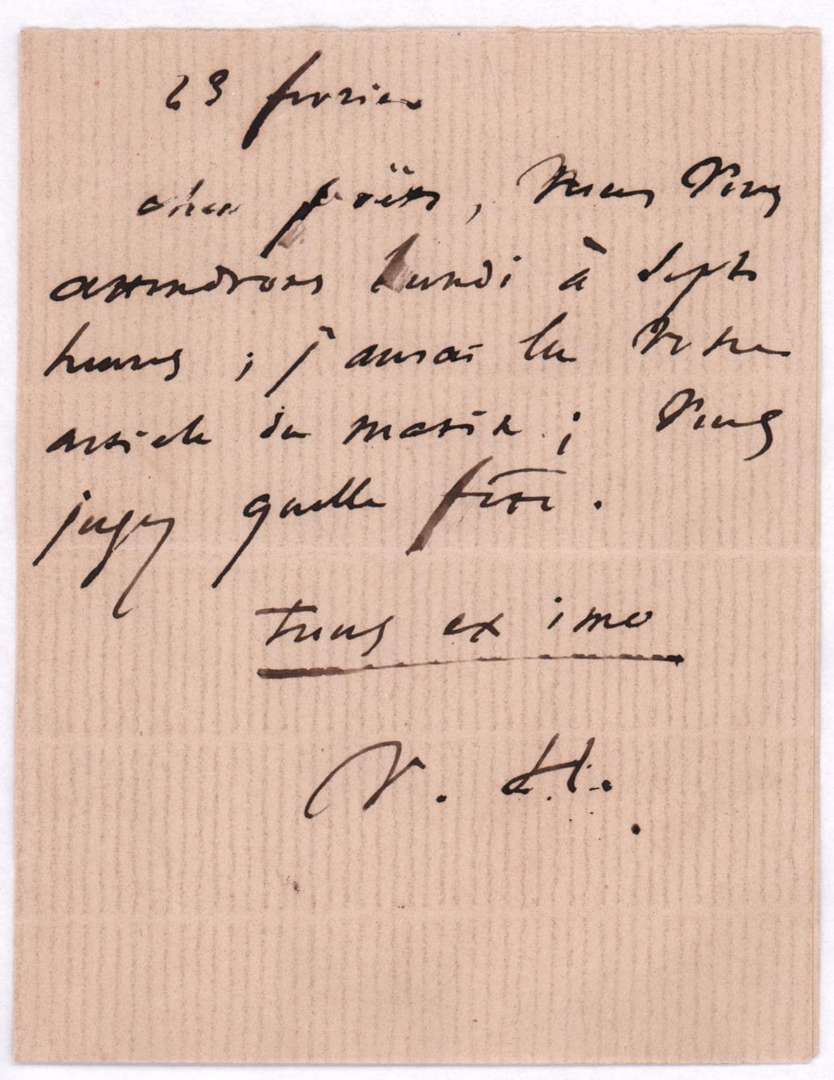 23 février
cher poëte, nous vous
attendrons lundi à sept
heures ; j'aurai lu votre
article du matin ; vous
jugez quelle fête.
tuus ex imo
V. H.